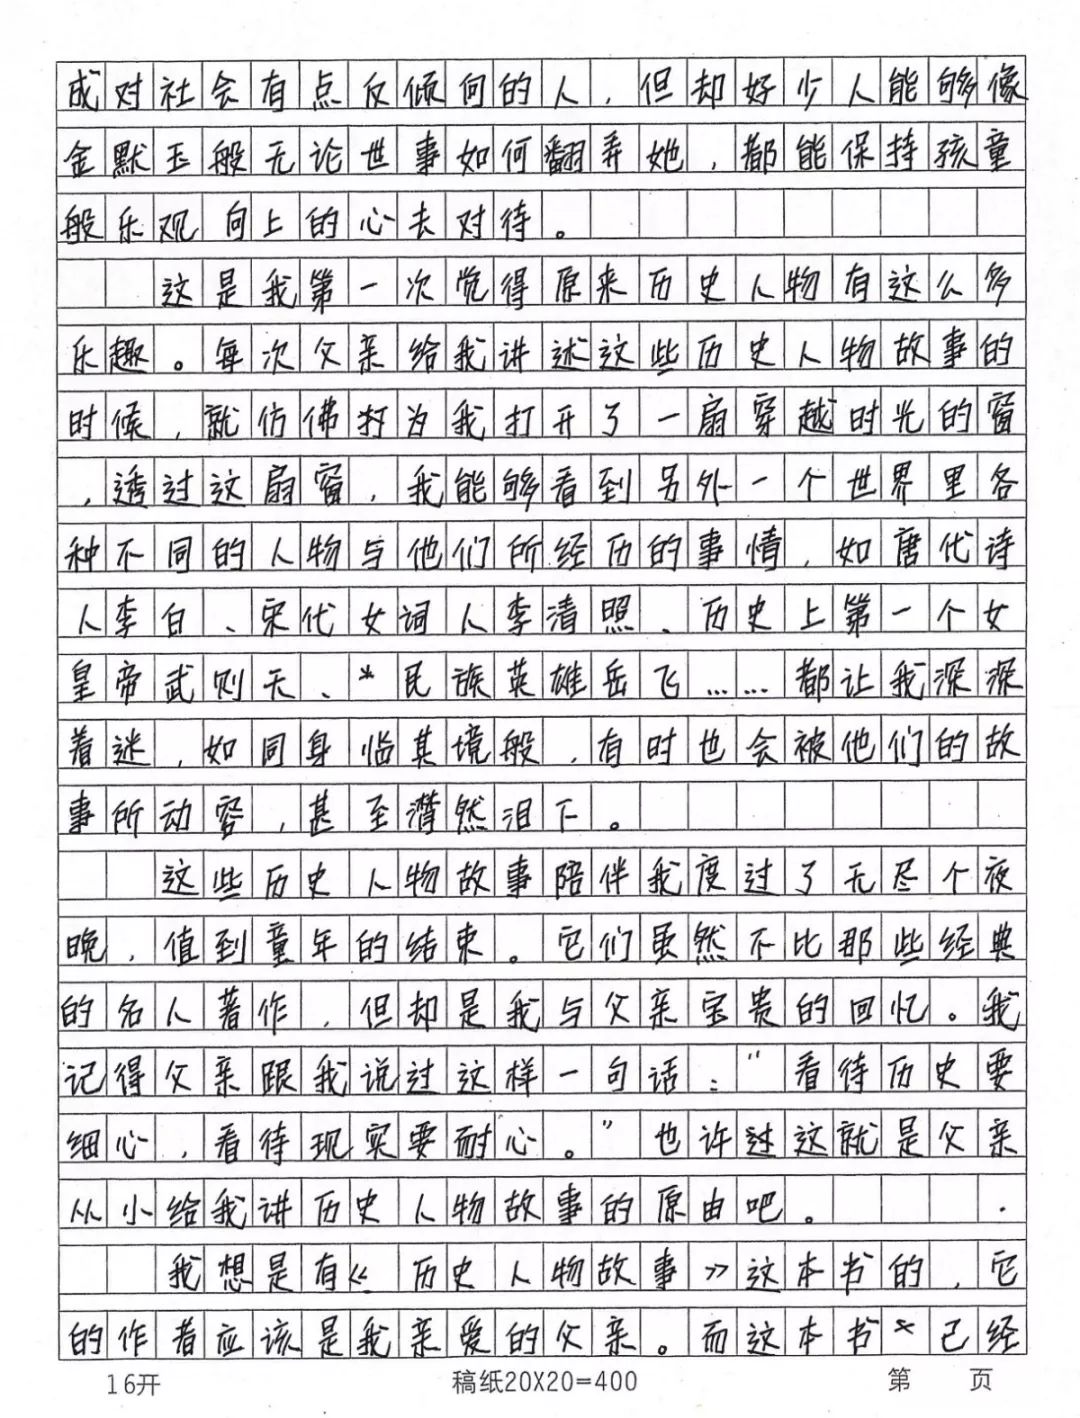 成对社会有点反倾向的人，但却好少人能够像
金默玉般无论世事如何翻弄她，都能保持孩童
般乐观向上的心去对待。
这是我第一次觉得原来历史人物有这么多
乐趣。每次父亲给我讲述这些历史人物故事的
时候，就仿佛打为我打开了一扇穿越时光的窗
，透过这扇窗，我能够看到另外一个世界里各
种不同的人物与他们所经历的事情，如唐代诗
人李白、宋代女词人李清照、历史上第一个女
皇帝武则天、*民族英雄岳飞……都让我深深
着迷，如同身临其境般，有时也会被他们的故
事所动容，甚至潸然泪下。
这些历史人物故事陪伴我度过了无尽个夜
晚，值到童年的结束。它们虽然不比那些经典
的名人著作，但却是我与父亲宝贵的回忆。我
记得父亲跟我说过这样一句话：“看待历史要
细心，看待现实要耐心。”也许过这就是父亲
从小给我讲历史人物故事的原由吧。
我想是有《历史人物故事》这本书的，它
的作者应该是我亲爱的父亲。而这本书*已经
16开 稿纸20X20=400 第 页